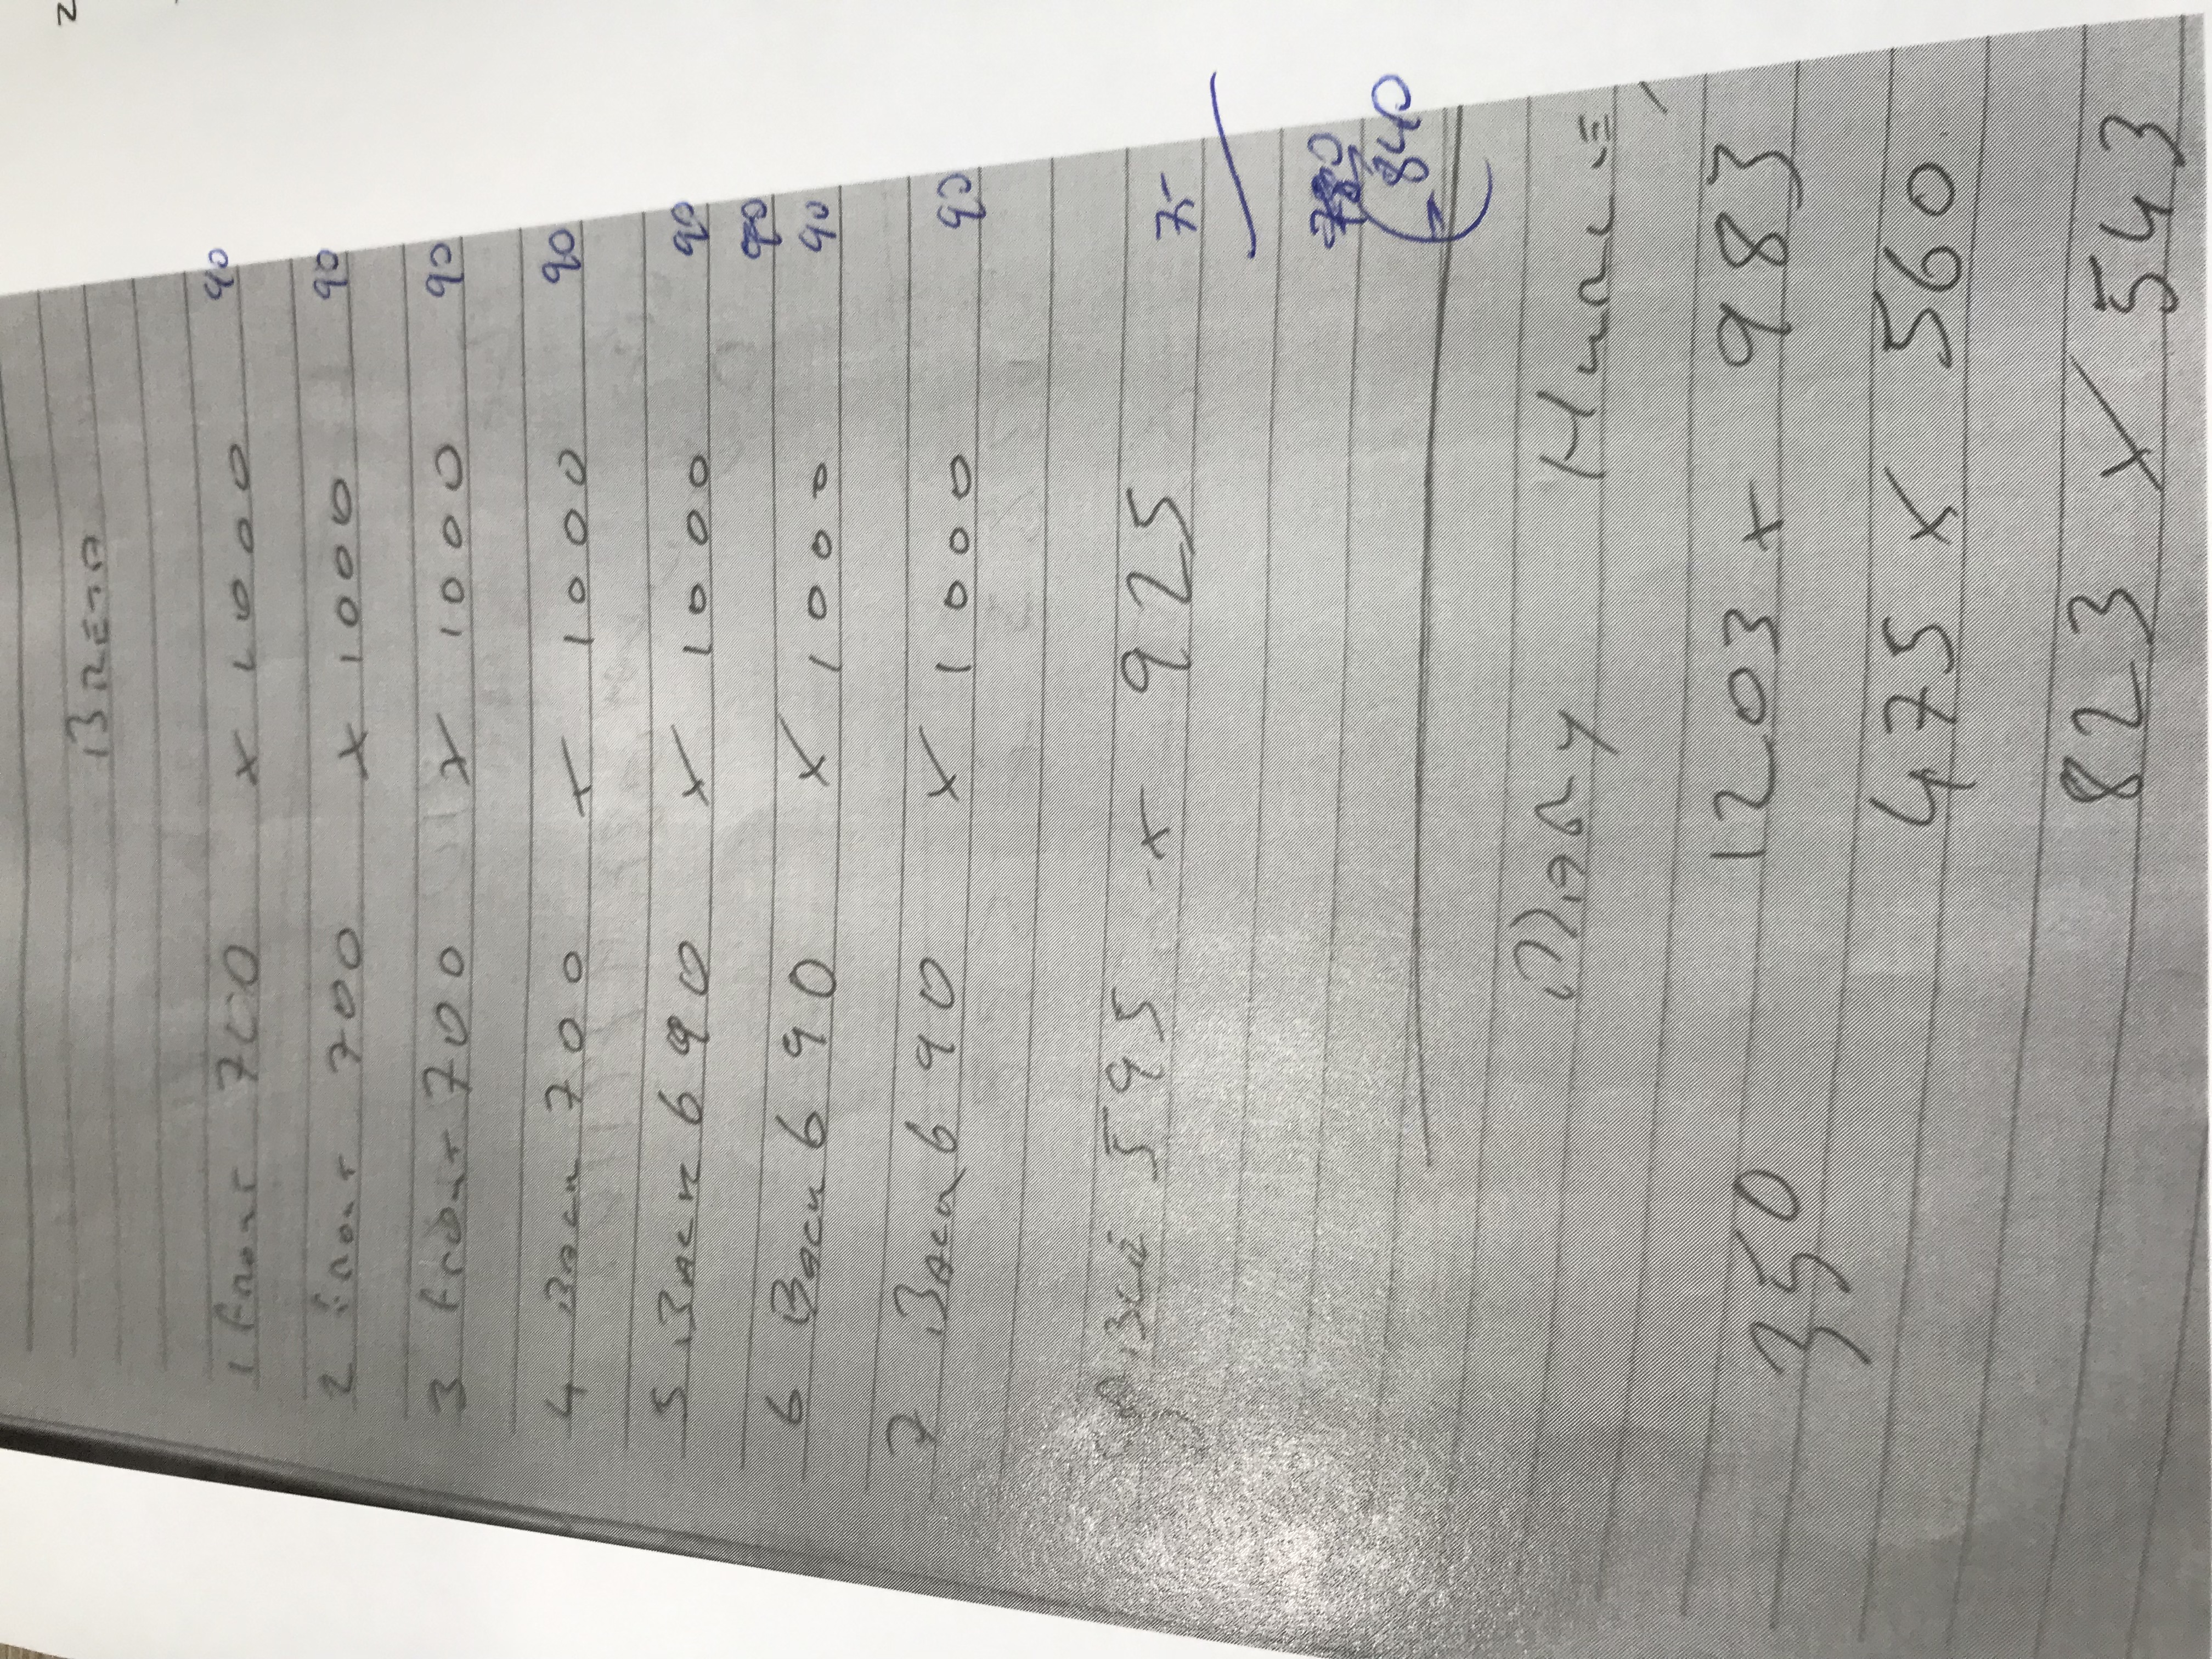 BREDA
1 Front 700 x 1000 90
2 Front 700 x 1000 90
3 Front 700 x 1000 90
4 Back 700 x 1000 90
5 Back 690 x 1000 90
90
6 Back 690 x 1000 90
7 Back 690 x 1000 90
595 x 925 75
840
350 1203 x 983
475 x 560
823 x 543